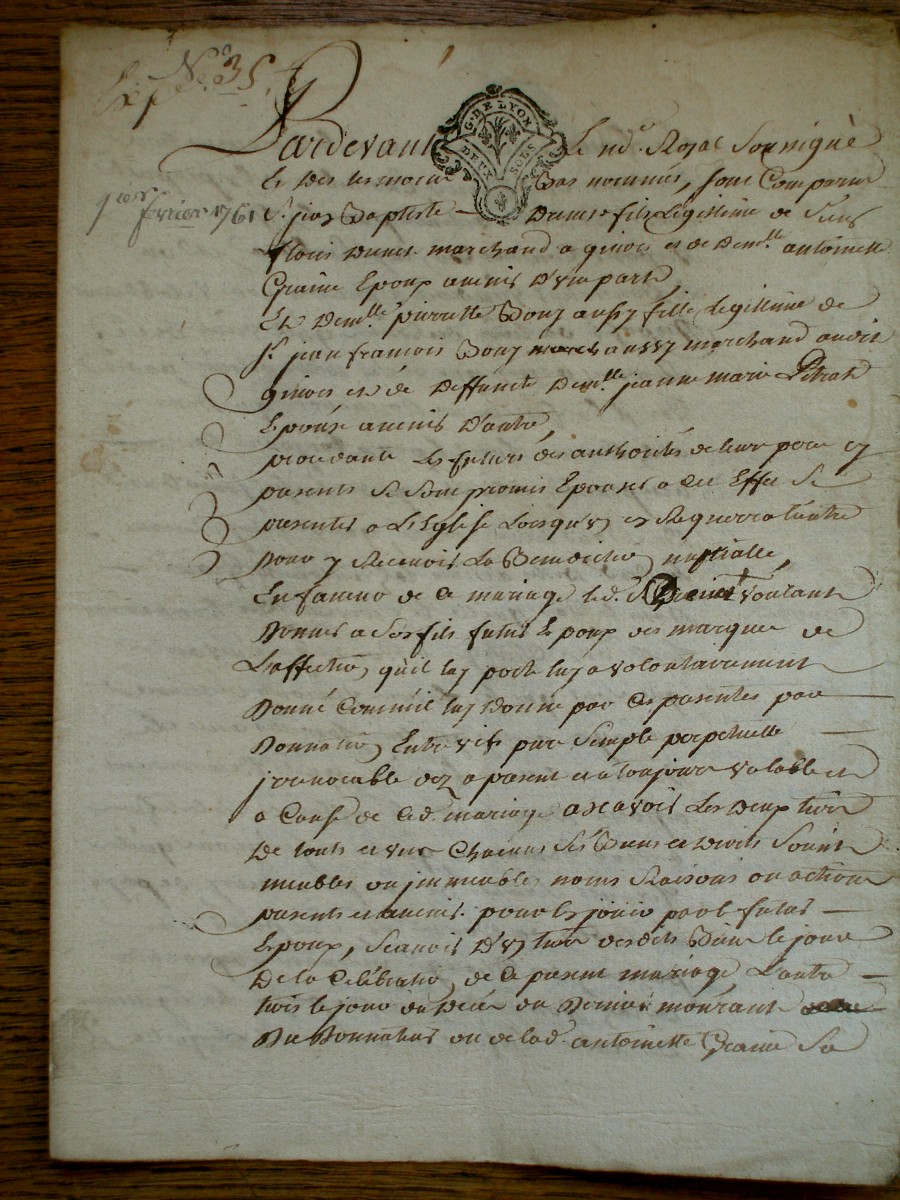 Exp. N.o 35.
1er. fevrier 1761
G. DE LYON
DEUX SOLS
Pardevant Le nore. Royal Soussigné
Et Des tesmoins Bas nommés, sont Comparus
Sr. jean Baptiste fils Legitime de Sieur
marchand a et de Demlle antoinette
Epoux avenir D'une part,
Et Demlle. pierrette Bouy aussy fille Legitime de
Sr. jean francois Bouy aussy marchand audit
et de Deffuncte Demlle jeanne marie
Epouse avenir D'autre,
procedants Les futurs des authorités de leur pere et
parents se sont promis Epouser a cet Effet se
presenter a L'Eglise Lorsqu'un en Requerra L'autre
pour y Recevoir La Benediction nuptialle,
En faveur de Ce mariage led. Sr. voulant
Donner a Son fils futur Epoux des marques de
L'affection qu'il luy porte luy a volontairement
Donné Comm'il luy Donne par Ces presentes par
Donnation Entre vifs pure Simple perpetuelle
jrrevocable dez a present et a toujours valable et
a Cause de Ced. mariage ascavoir Les Deux tiers
De touts et uns Chacuns Ses Biens et Droits Soint
meubles ou jmmeubles noms Raisons ou actions
presents et avenir pour En jouir par le futur
Epoux, Scavoir D'un tiers desdits Biens le jour
De la Celebration de Ce present mariage L'autre
tiers le jour du Deces du Dernier mourant
Du Donnateur ou de lad. antoinette Sa